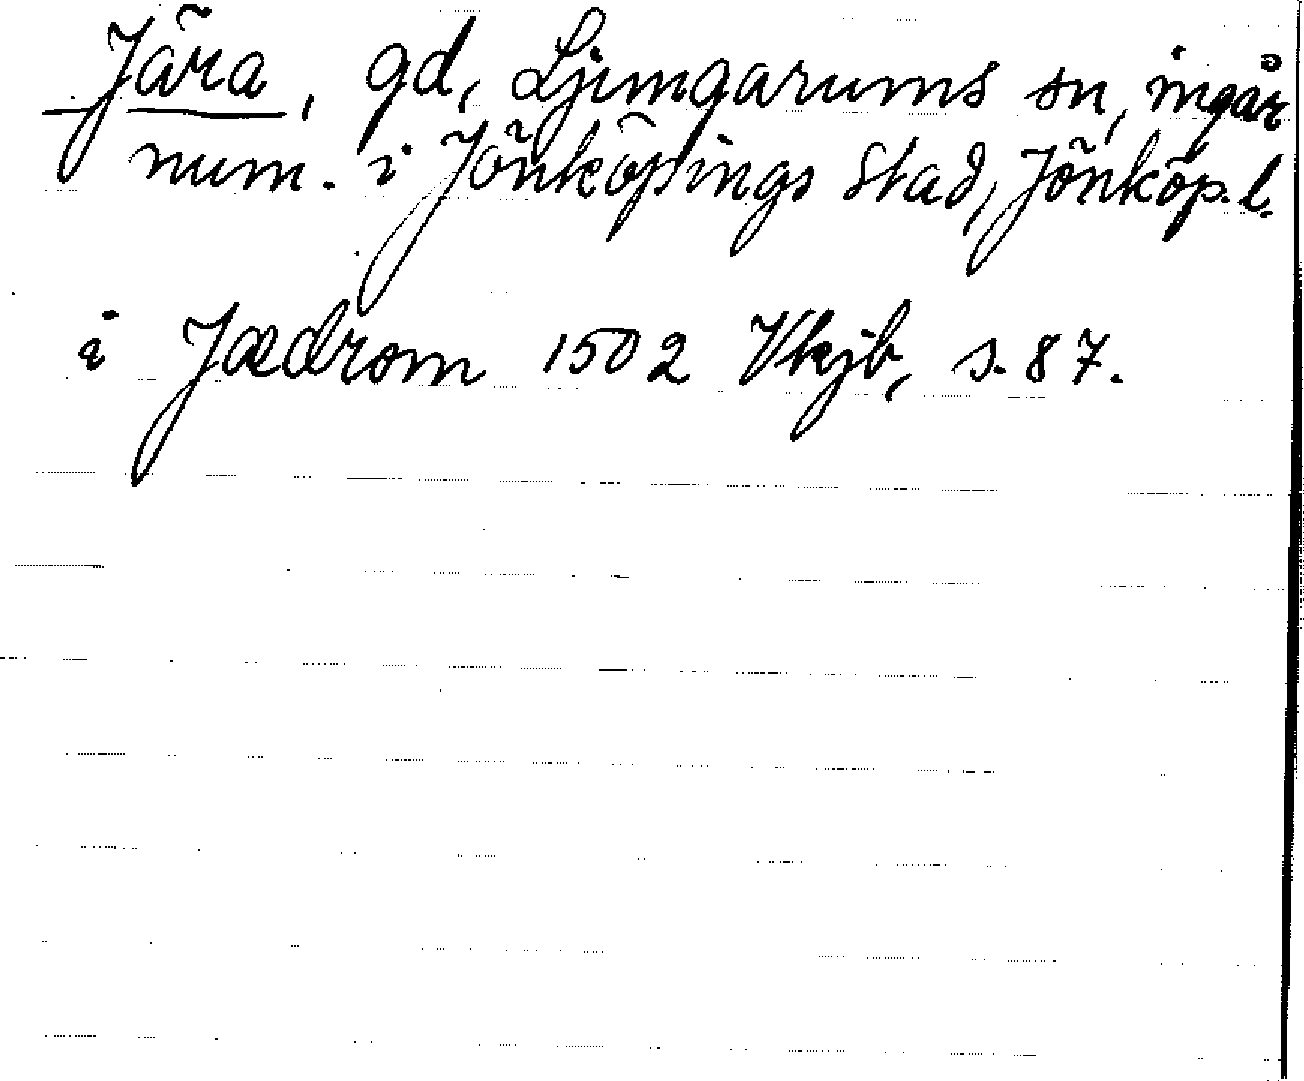 Jära, gd, Ljungarums sn, ingår
num. i Jönköpings Stad, Jönköp. l.
i Jædrom 1502 Vkjb, s. 87.